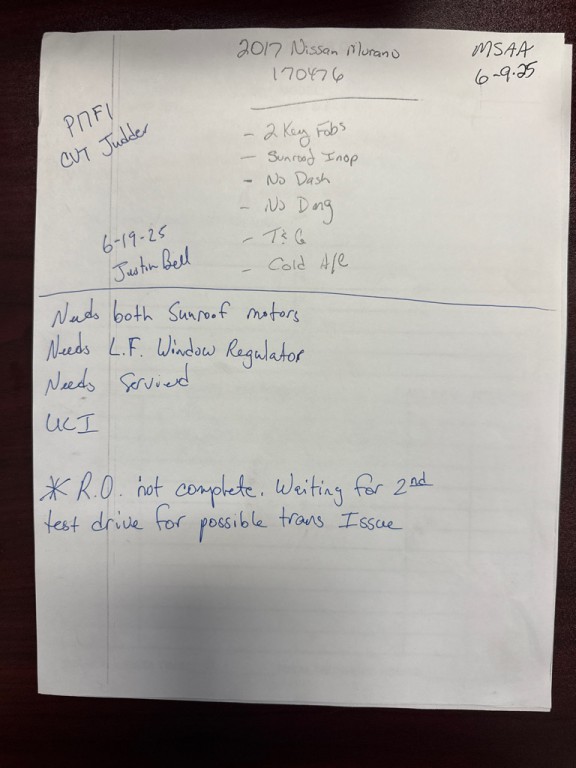 2017 Nissan Murano
170476
MSAA
6-9-25
CVT Judder
- 2 Key Fobs
- Sunroof Inop
- No Dash
- No
- T&G
- Cold A/C
6-19-25
Justin Bell
Needs both Sunroof motors
Needs L.F. Window Regulator
Needs Serviced
UCI
* R.O. not complete. Waiting for 2nd
test drive for possible trans Issue